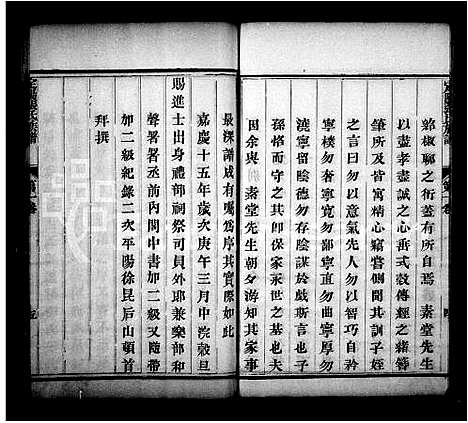 螽椒聊之衍蓋有所自焉 素堂先生
以盡孝盡誠之心垂式穀傳經之緒簪
筆所及皆寓精心竊嘗側聞其訓子姪
之言曰勿以意氣先人勿以智巧矜人
寧樸勿奢寧寬勿鄙寧直勿曲寧厚勿
澆寧留陰德勿存陰謀於戲斯言也子
孫恪而守之其即保家永世之基也夫
因余與 素堂先生朝夕游知其家事
最深譜成有囑爲序其實際如此
嘉慶十五年歲次庚午三月中浣穀旦
賜進士出身禮部祠祭司員外郎兼樂部和
聲署署丞前內閣中書加二級又隨帶
加二級紀錄二次平陽徐昆后山頓首
拜撰